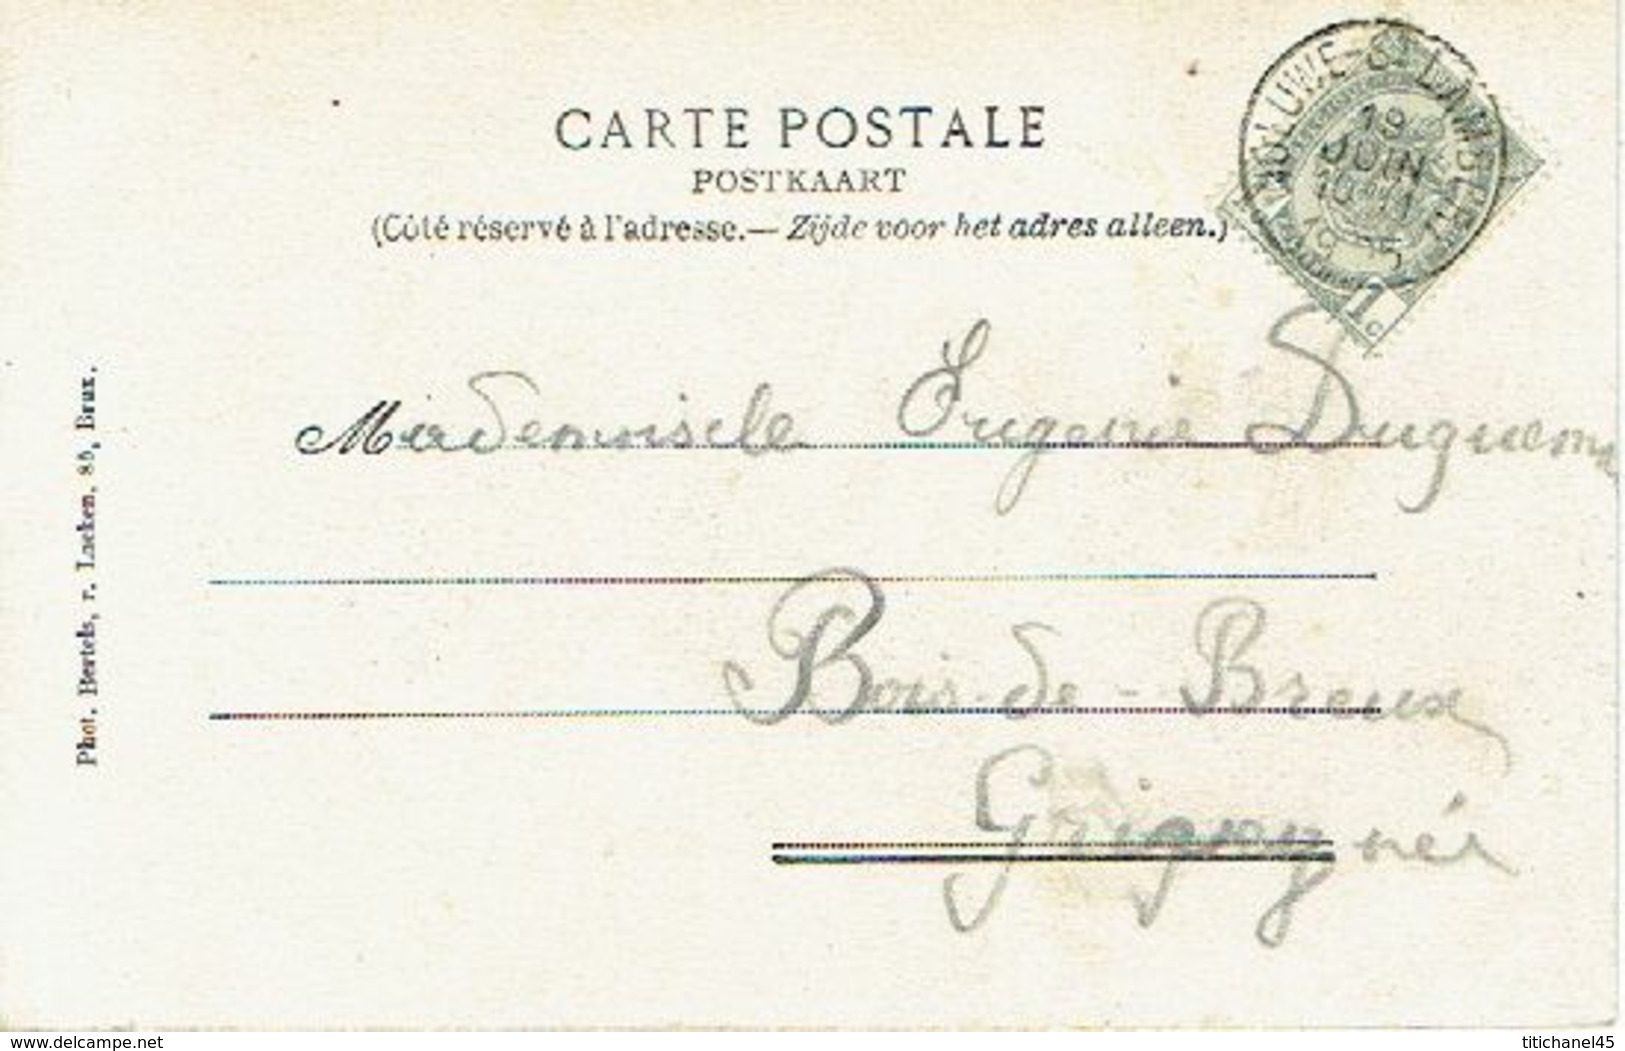 CARTE POSTALE
POSTKAART
(Côté réservé à l'adresse.— Zijde voor het adres alleen.)
WOLUWE-ST LAMBERT
19
JUIN
19 5
1c
Mademoiselle Eugenie
Bois-de-Breux
Phot. Bertels, r. Laeken, 86, Brux.
www.delcampe.net
titichanel45